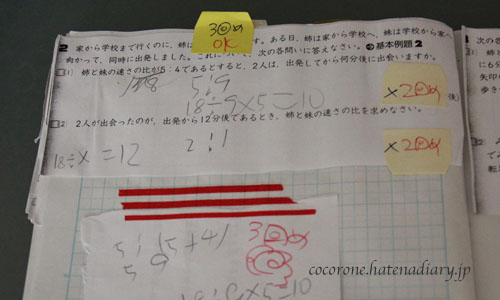 3回め
OK
2 家から学校まで行くのに、姉は
す。ある日、姉は家から学校へ、妹は学校から家へ
向かって、同時に出発しました。これについて、次の各問いに答えなさい。 基本例題2
(1) 姉と妹の速さの比が5:4であるとすると、2人は、出発してから何分後に出会いますか。
5:9
18÷9×5=10
×2回め
後)
(2) 2人が出会ったのが、出発から12分後であるとき、姉と妹の速さの比を求めなさい。
2:1
×2回め
18÷x=12
5:(5+4)
5 9
3回め
×5=10
cocorone.hatenadiary.jp